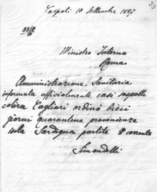 Napoli 10 Settembre 1887
Ministro Interno
Roma
Amministrazione Sanitaria
informata ufficialmente casi sospetti
colera Cagliari ordinò dieci
giorni quarantena provenienze
isola Sardegna partite